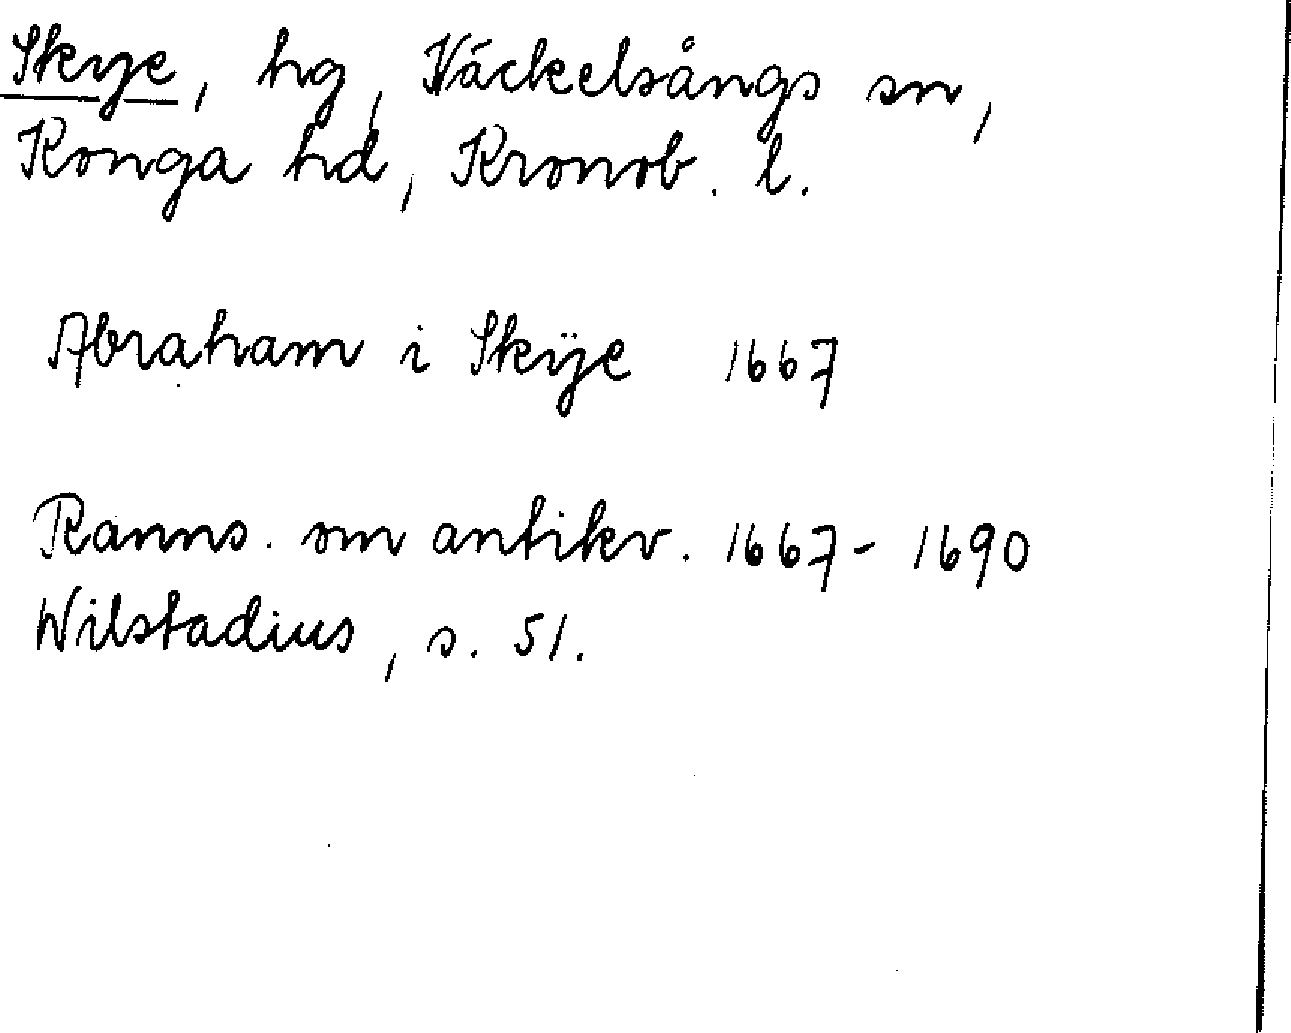 Skye, hg, Väckelsångs sn,
Konga hd, Kronob. l.
Abraham i Skÿe 1667
Ranns. om antikv. 1667-1690
Wilstadius, s. 51.